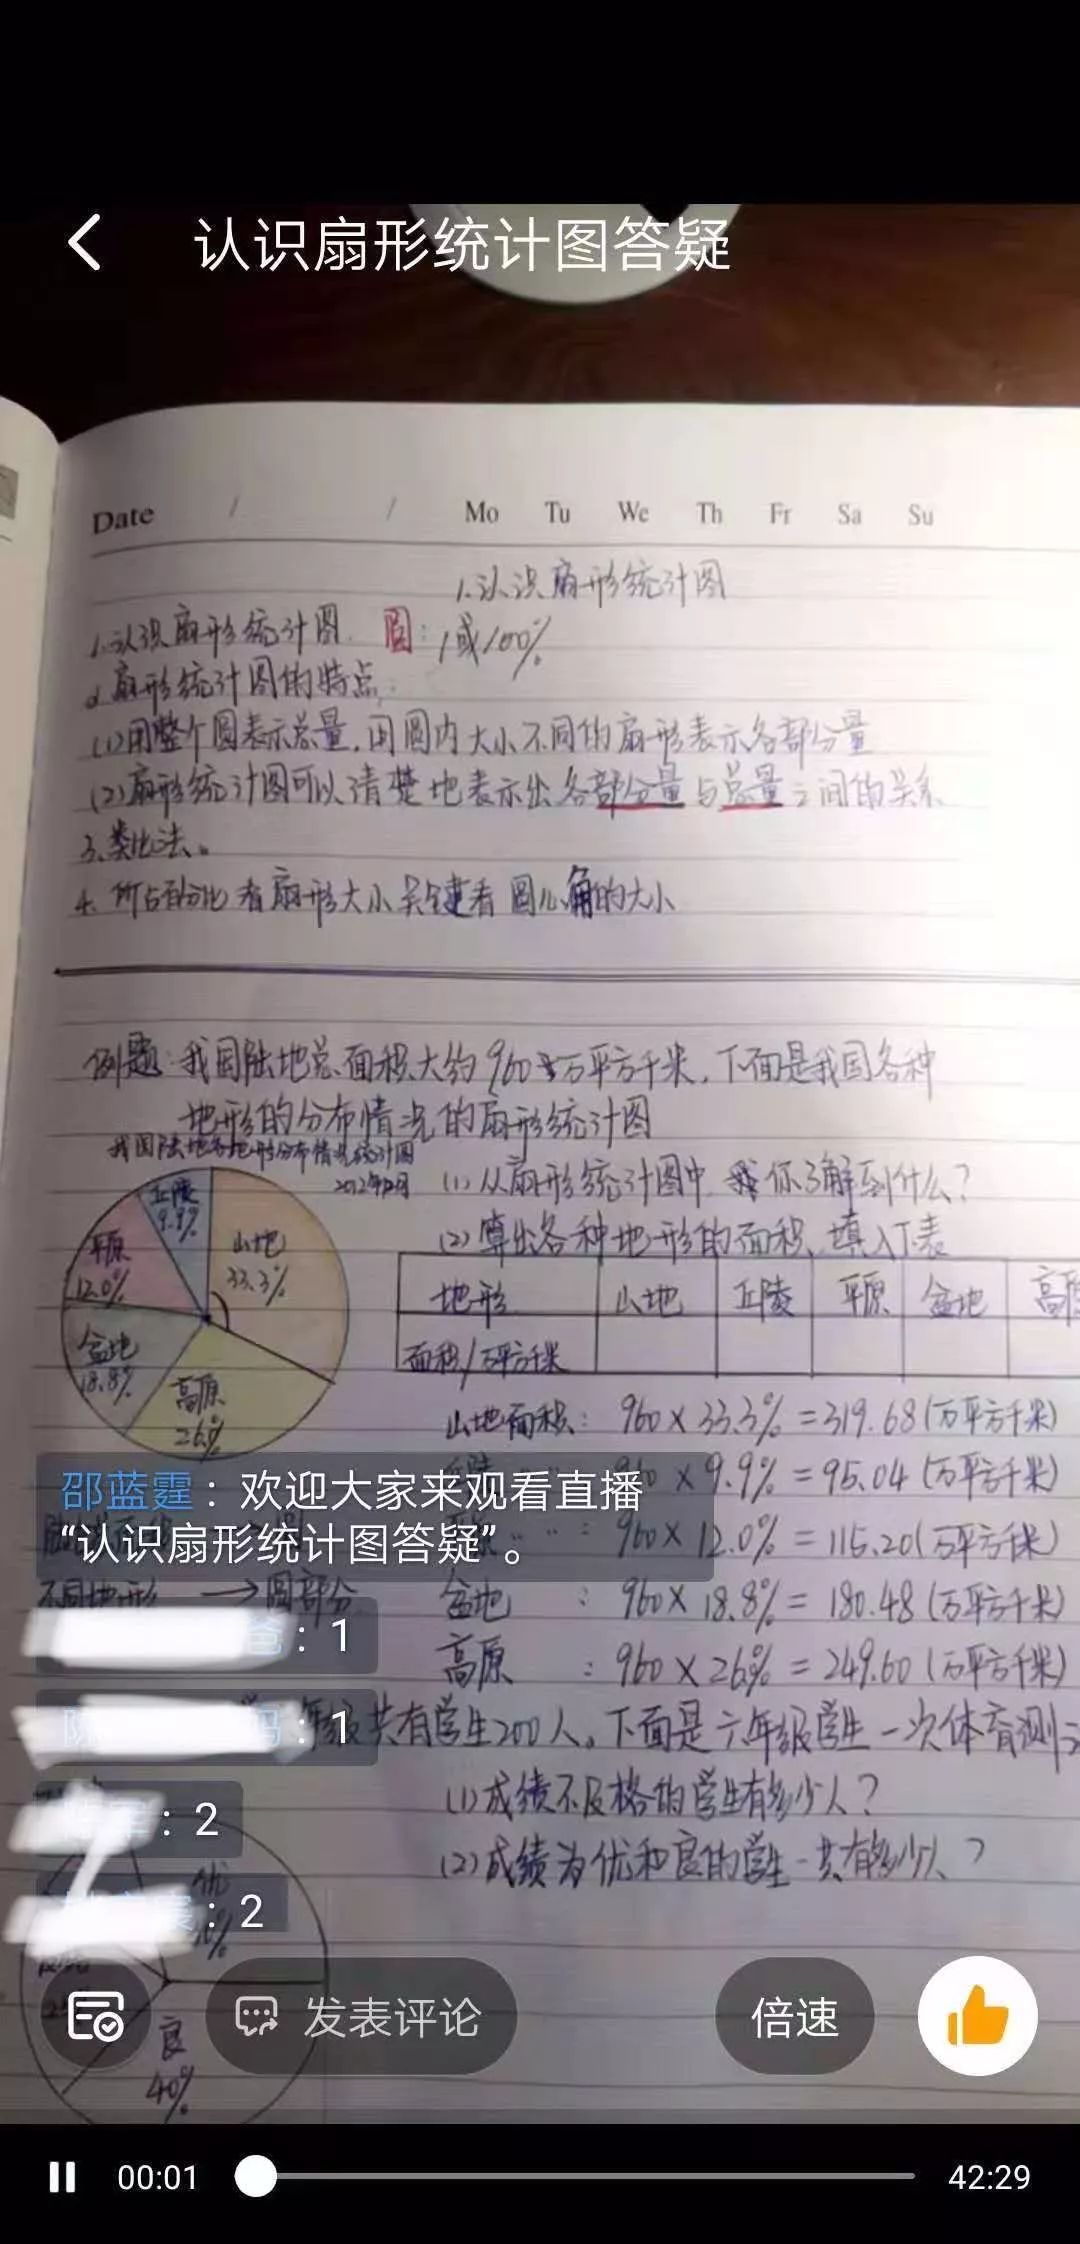 认识扇形统计图答疑
Date / / Mo Tu We Th Fr Sa Su
1.认识扇形统计图
1.认识扇形统计图. 圆: 1或100%
2.扇形统计图的特点:
(1)用整个圆表示总量,用圆内大小不同的扇形表示各部分量
(2)扇形统计图可以清楚地表示出各部分量与总量之间的关系
3.类比法。
4.所占百分比看扇形大小关键看圆心角的大小
例题:我国陆地总面积大约960万平方千米,下面是我国各种
地形的分布情况的扇形统计图
我国陆地各地形分布情况统计图
(1)从扇形统计图中,你了解到什么?
(2)算出各种地形的面积,填入下表
丘陵
9.9%
山地
33.3%
平原
12.0%
盆地
18.8%
高原
26%
地形 山地 丘陵 平原 盆地 高原
面积/万平方千米
山地面积: 960×33.3%=319.68(万平方千米)
960×9.9%=95.04(万平方千米)
960×12.0%=115.20(万平方千米)
盆地 : 960×18.8%=180.48(万平方千米)
高原 : 960×26%=249.60(万平方千米)
邵蓝霆:欢迎大家来观看直播
“认识扇形统计图答疑”。
不同地形→圆部分
爸:1
妈:1
:2
:2
年级共有学生200人。下面是六年级学生一次体育测
(1)成绩不及格的学生有多少人?
(2)成绩为优和良的学生一共有多少人?
优
良
40%
发表评论
倍速
00:01
42:29